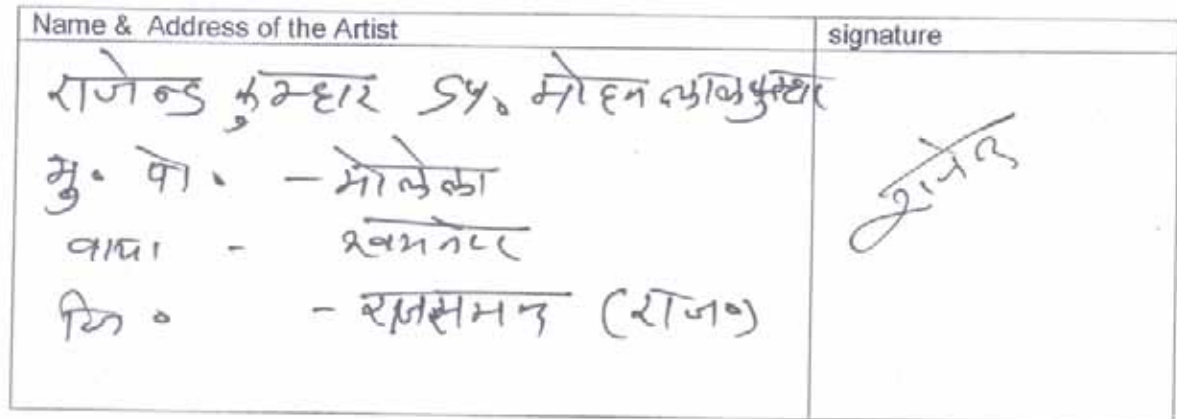 Name & Address of the Artist
signature
राजेन्द्र कुम्हार S/o. मोहन लाल कुम्हार
मु. पो. - मोलेला
वाया - खमनोर
जि. - राजसमन्द (राज०)
राजेन्द्र